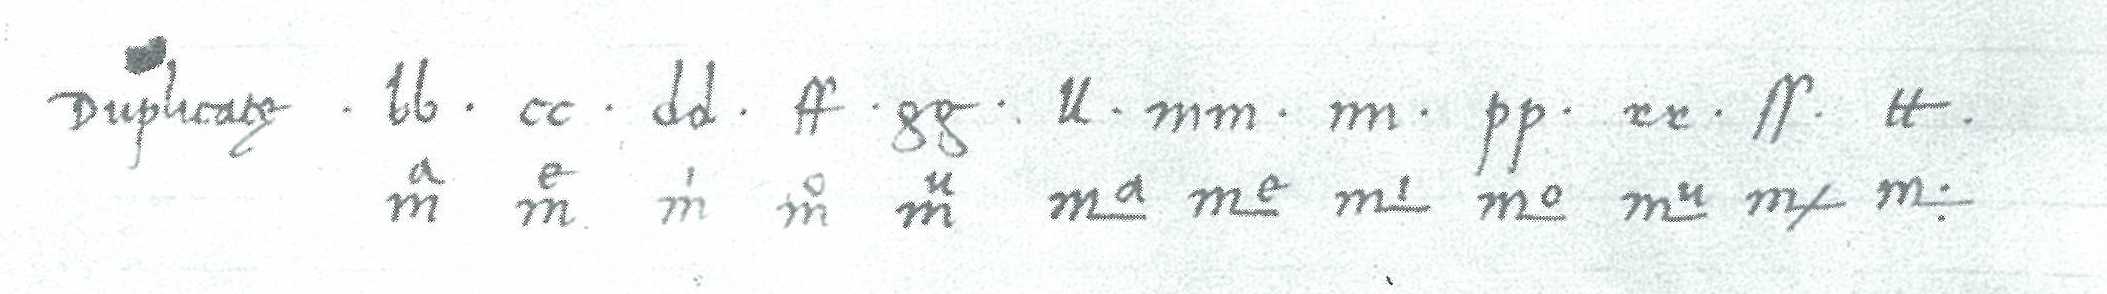 Duplicate · bb · cc · dd · ff · gg · ll · mm · nn · pp · rr · ss · tt ·
mͣ mͤ mͥ mͦ mͧ mᵃ mᵉ mⁱ mᵒ mᵘ m⌿ m÷